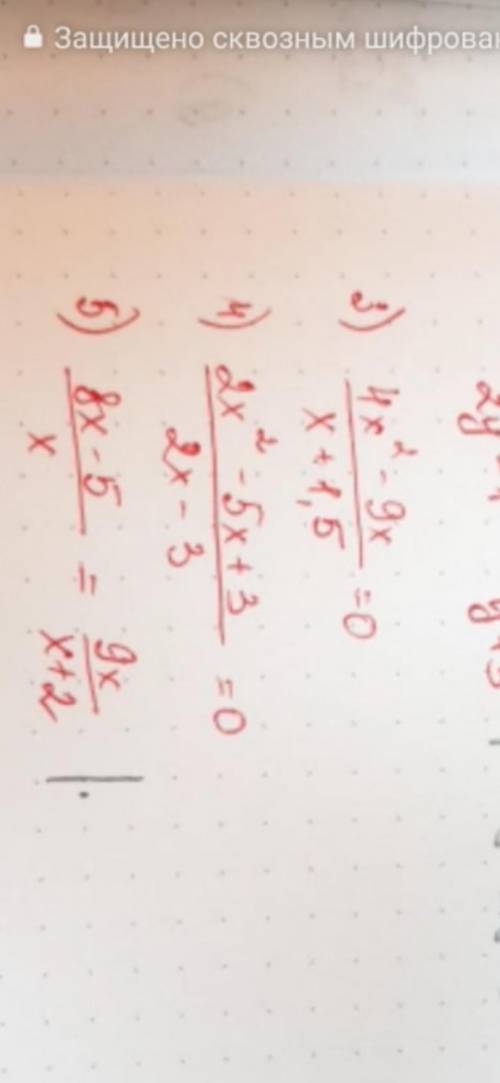 Защищено сквозным шифрован
3) (4x² - 9x)/(x + 1,5) = 0
4) (2x² - 5x + 3)/(2x - 3) = 0
5) (8x - 5)/x = 9x/(x + 2)